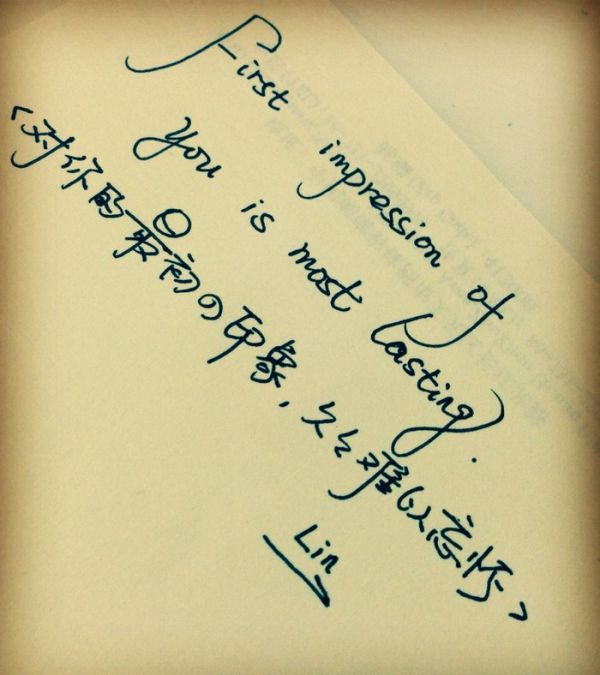 First impression of
you is most lasting.
「对你的最初の印象，久久难以忘怀」
Lin